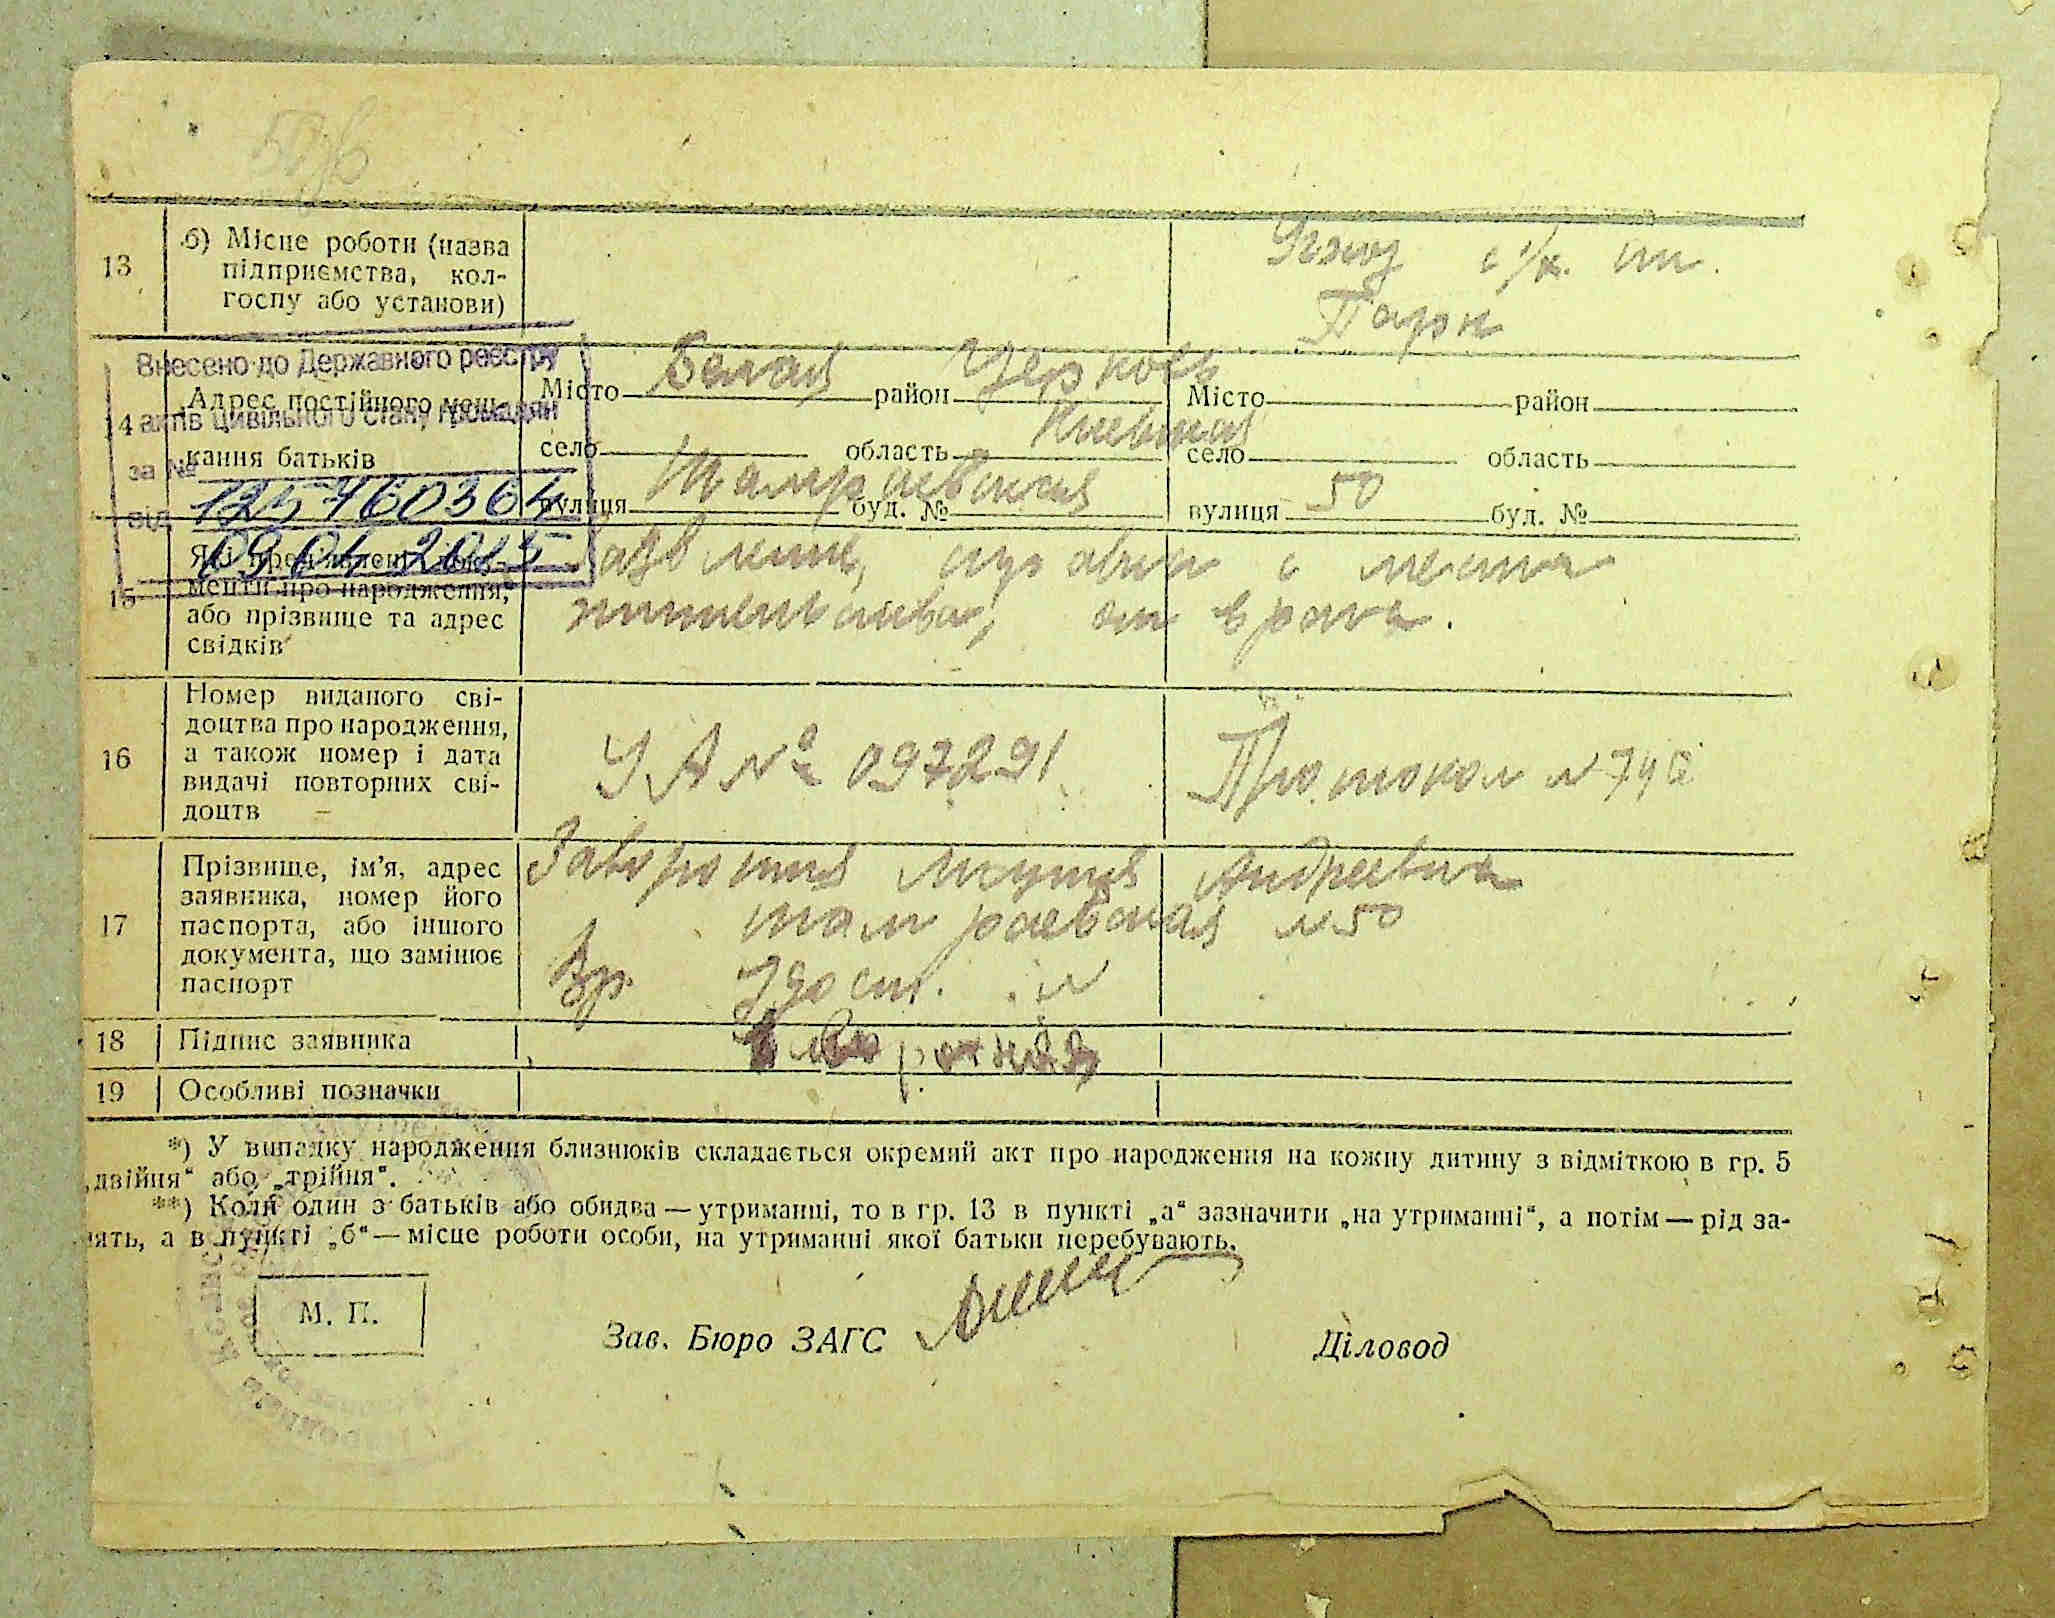 13
б) Місце роботи (назва
підприємства, кол-
госпу або установи)
Ягжоз с/х. ин.
Внесено до Державного реєстру
актів цивільного стану громадян
за № 125760364
від 09 04 2015
14
Адрес постійного меш-
кання батьків
Місто Белая район Церковь
село область Киевская
вулиця буд. №
Місто район
село область
вулиця 50 буд. №
15
Які пред'явлені доку-
менти про народження,
або прізвище та адрес
свідків
справки с места
жительства, от врача.
16
Номер виданого сві-
доцтва про народження,
а також номер і дата
видачі повторних сві-
доцтв
УА № 097291
Протокол № 740
17
Прізвище, ім'я, адрес
заявника, номер його
паспорта, або іншого
документа, що замінює
паспорт
Андреевна
№ 50
Вр. Удост. №
18
Підпис заявника
19
Особливі позначки
*) У випадку народження близнюків складається окремий акт про народження на кожну дитину з відміткою в гр. 5
„двійня" або „трійня".
**) Коли один з батьків або обидва — утриманці, то в гр. 13 в пункті „а" зазначити „на утриманні", а потім — рід за-
нять, а в пункті „б" — місце роботи особи, на утриманні якої батьки перебувають.
М. П.
Зав. Бюро ЗАГС
Діловод